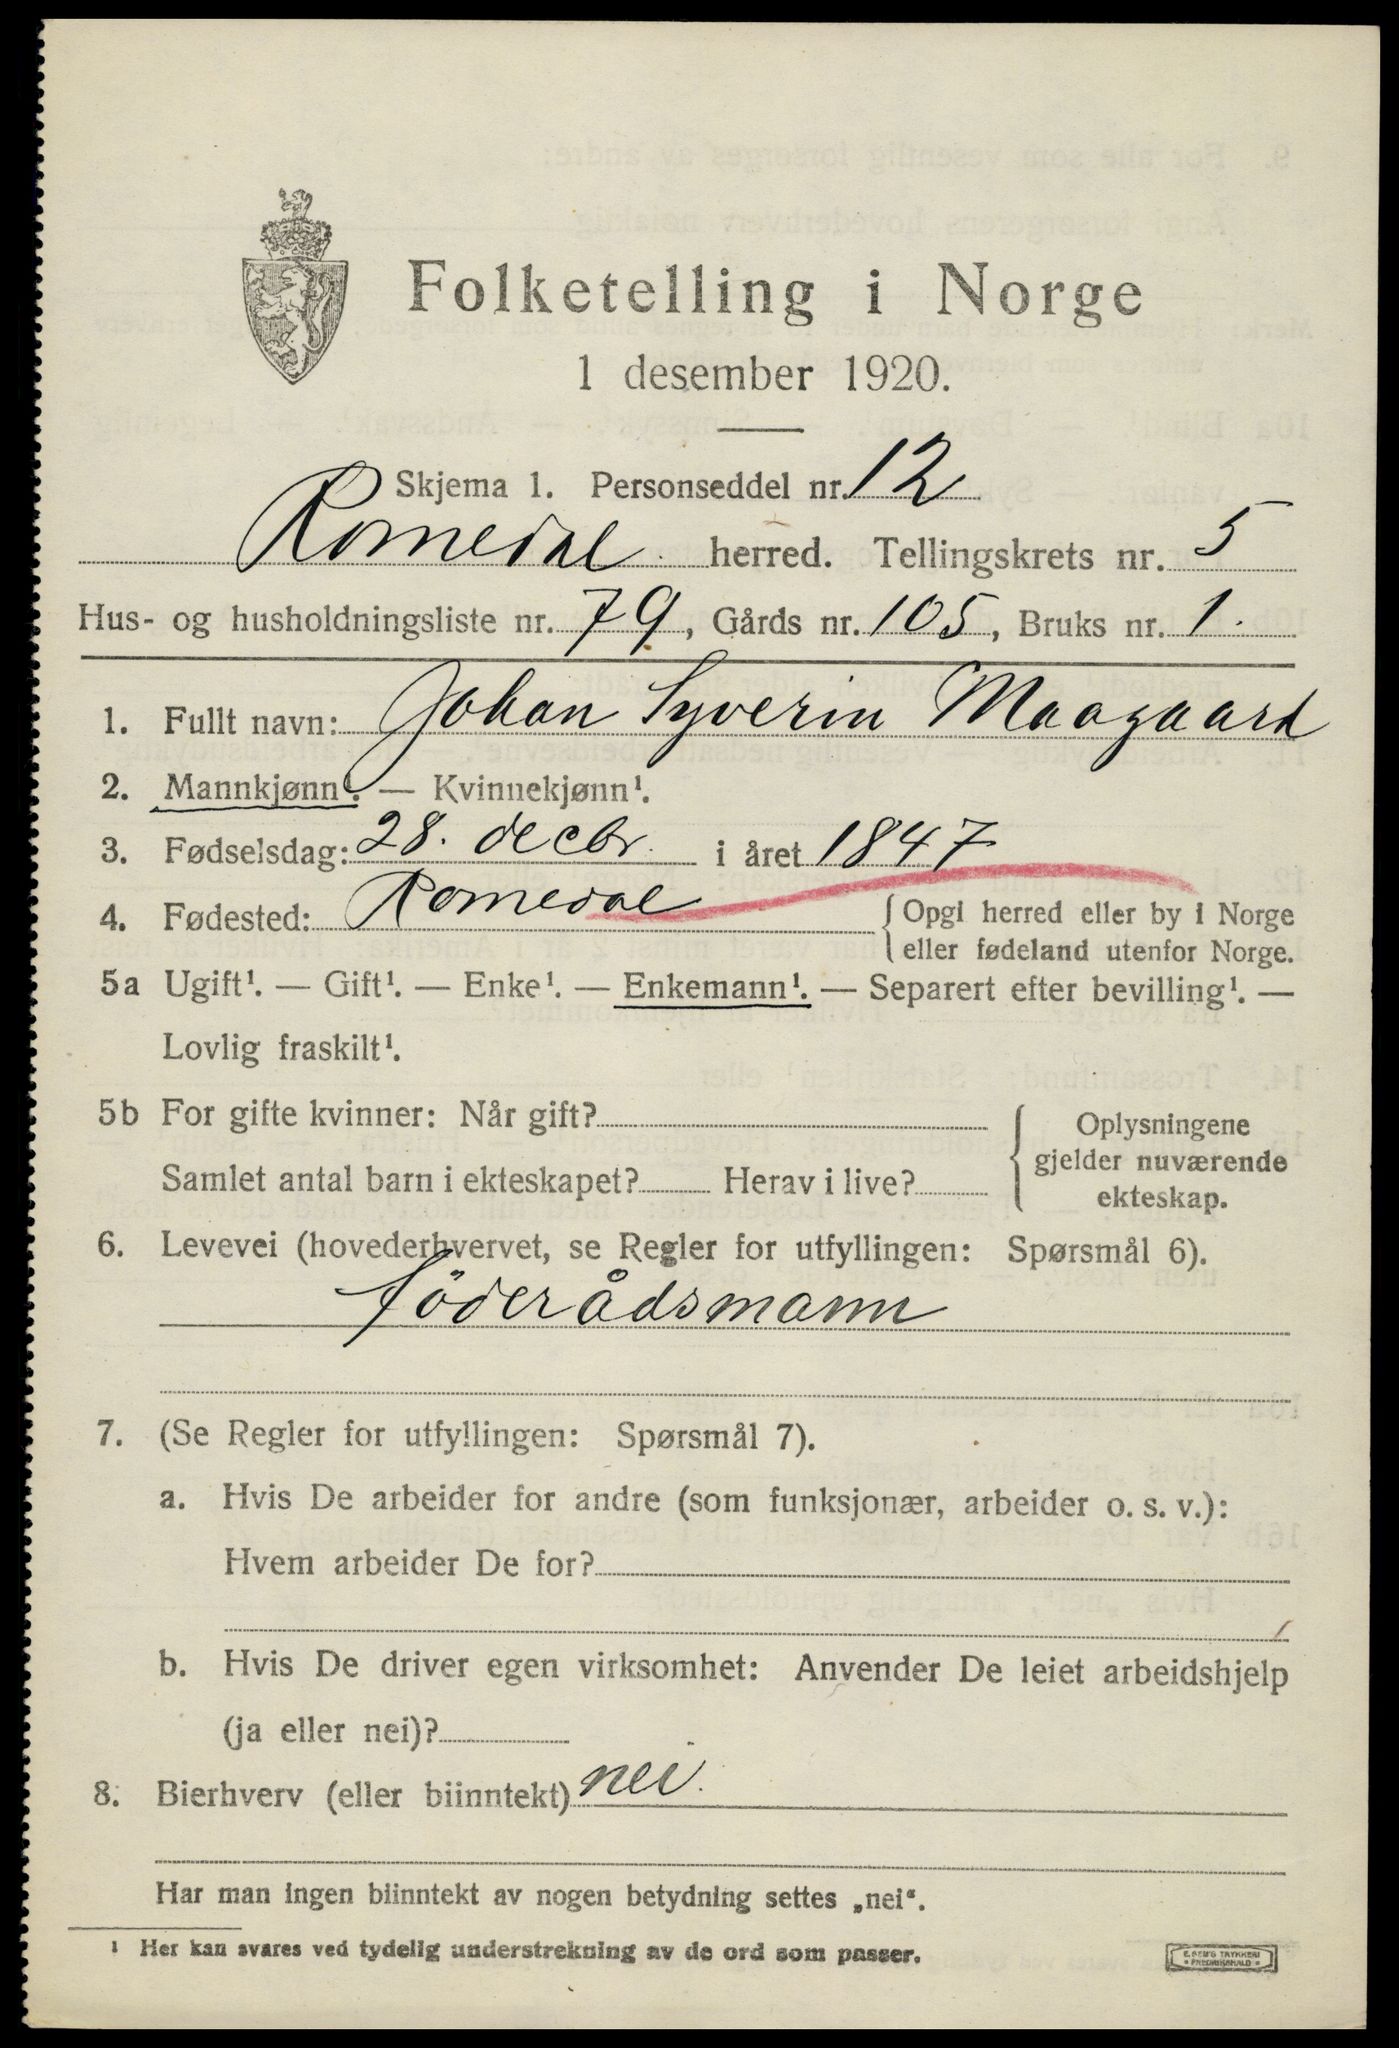 Folketelling i Norge
1 desember 1920.
Skjema 1. Personseddel nr. 12
Romedal herred. Tellingskrets nr. 5
Hus- og husholdningsliste nr. 79, Gårds nr. 105, Bruks nr. 1.
1. Fullt navn: Johan Syverin Maagaard
2. Mannkjønn¹. — Kvinnekjønn¹.
3. Fødselsdag: 28. decbr. i året 1847
4. Fødested: Romedal {Opgi herred eller by i Norge
eller fødeland utenfor Norge.
5a Ugift¹. — Gift¹. — Enke¹. — Enkemann¹. — Separert efter bevilling¹. —
Lovlig fraskilt¹.
5b For gifte kvinner: Når gift?
Samlet antal barn i ekteskapet? Herav i live?
{Oplysningene
gjelder nuværende
ekteskap.
6. Levevei (hovederhvervet, se Regler for utfyllingen: Spørsmål 6).
föderådsmann
7. (Se Regler for utfyllingen: Spørsmål 7).
a. Hvis De arbeider for andre (som funksjonær, arbeider o. s. v.):
Hvem arbeider De for?
b. Hvis De driver egen virksomhet: Anvender De leiet arbeidshjelp
(ja eller nei)?
8. Bierhverv (eller biinntekt) nei.
Har man ingen biinntekt av nogen betydning settes „nei“.
¹ Her kan svares ved tydelig understrekning av de ord som passer.
E. SEM'S TRYKKERI
* FREDRIKSHALD *